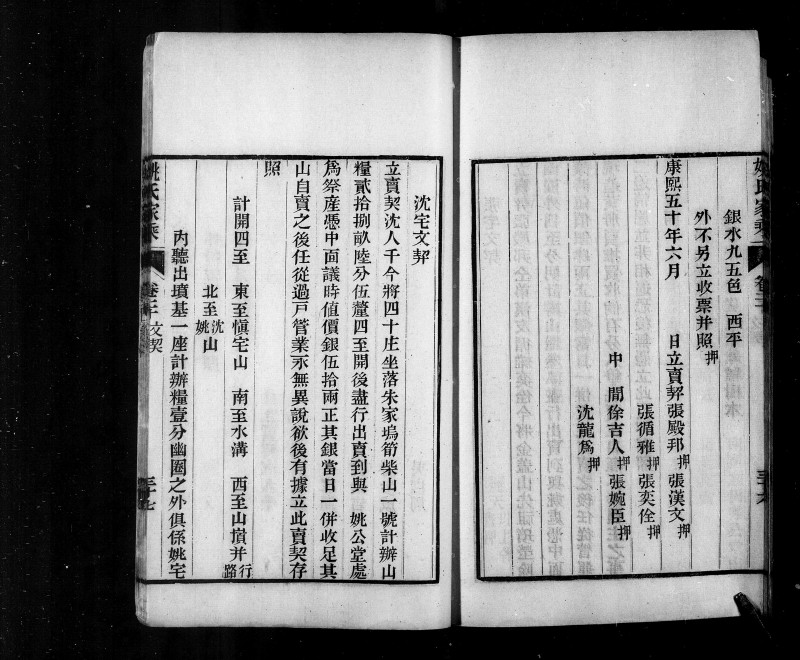 銀水九五色　西平
外不另立收票并照押
康熙五十年六月　　日立賣契張殿邦押　張漢文押
張循雅押　張奕佺押
中　間徐吉人押　張婉臣押
沈龍爲押
沈宅文契
立賣契沈人千今將四十庄坐落朱家塢筍柴山一號計辦山
糧貳拾捌畝陸分伍釐四至開後盡行出賣到與　姚公堂處
爲祭産憑中面議時値價銀伍拾兩正其銀當日一併收足其
山自賣之後任從過戸管業永無異說欲後有據立此賣契存
照
計開四至　東至愼宅山　南至水溝　西至山墳并行路
北至沈姚山
內聽出墳基一座計辦糧壹分幽圈之外俱係姚宅
姚氏家乘　卷三　文契　三十七